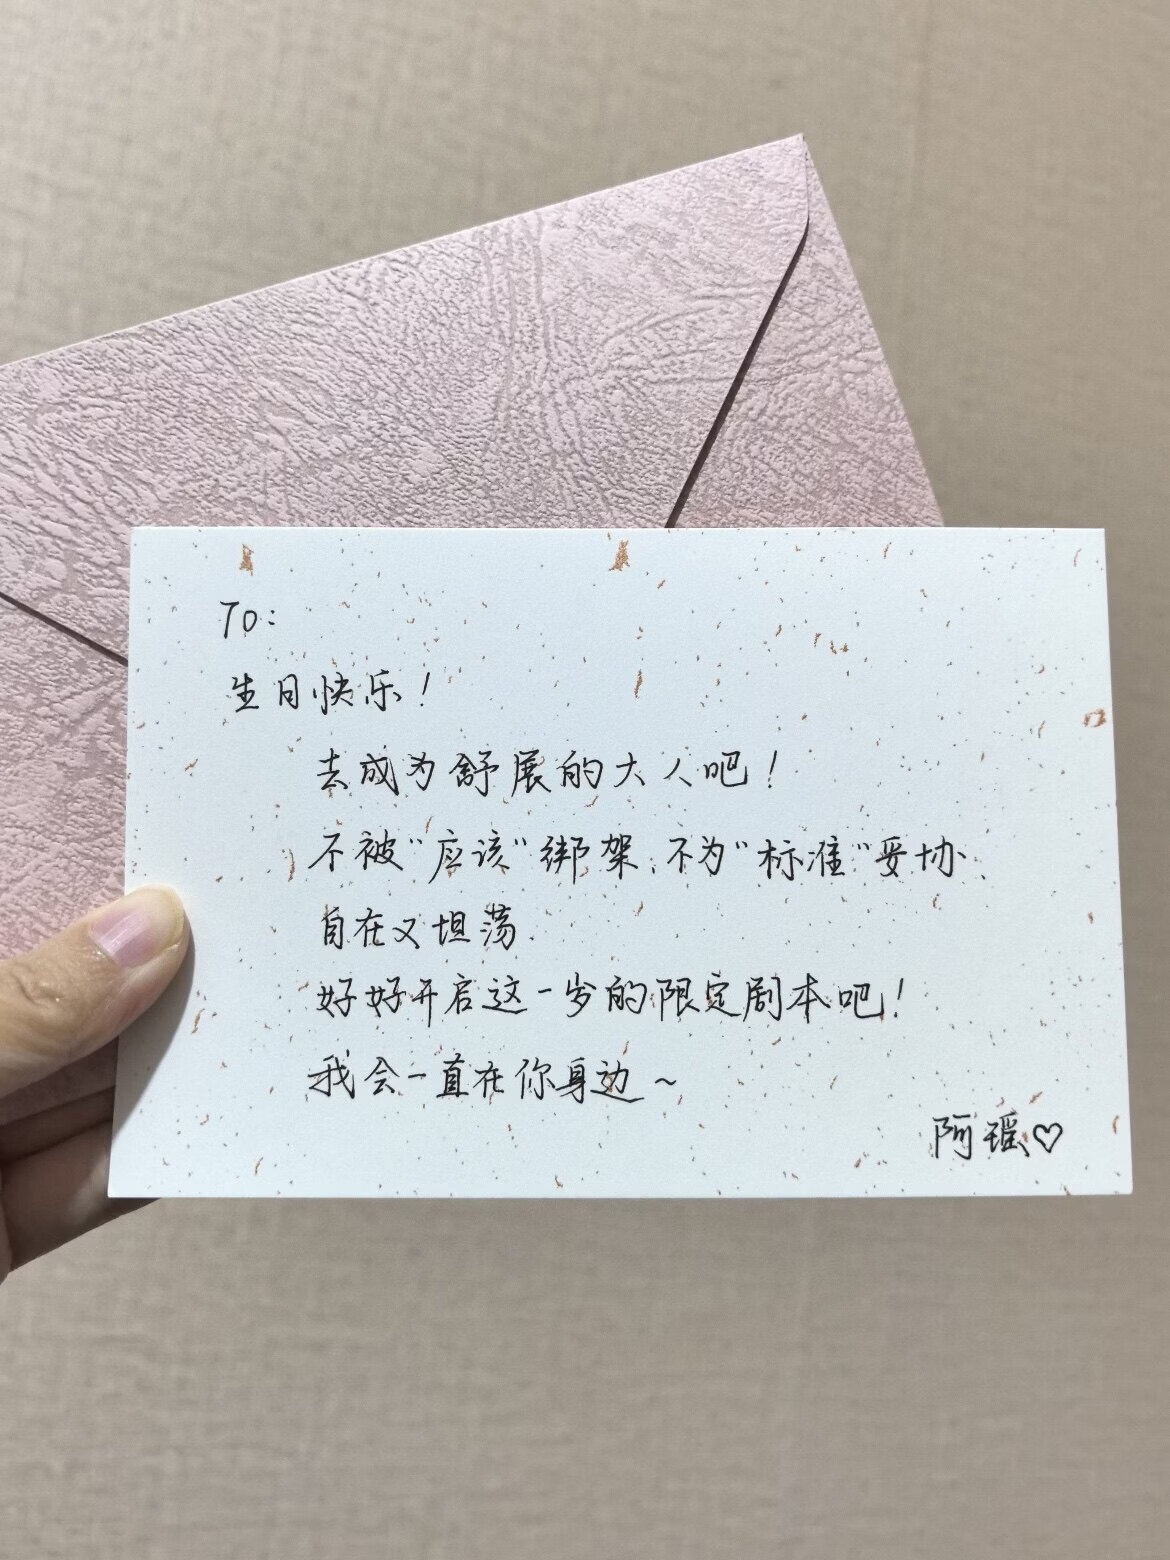 To:
生日快乐！
去成为舒展的大人吧！
不被"应该"绑架、不为"标准"妥协、
自在又坦荡.
好好开启这一岁的限定剧本吧！
我会一直在你身边～
阿瑶♡